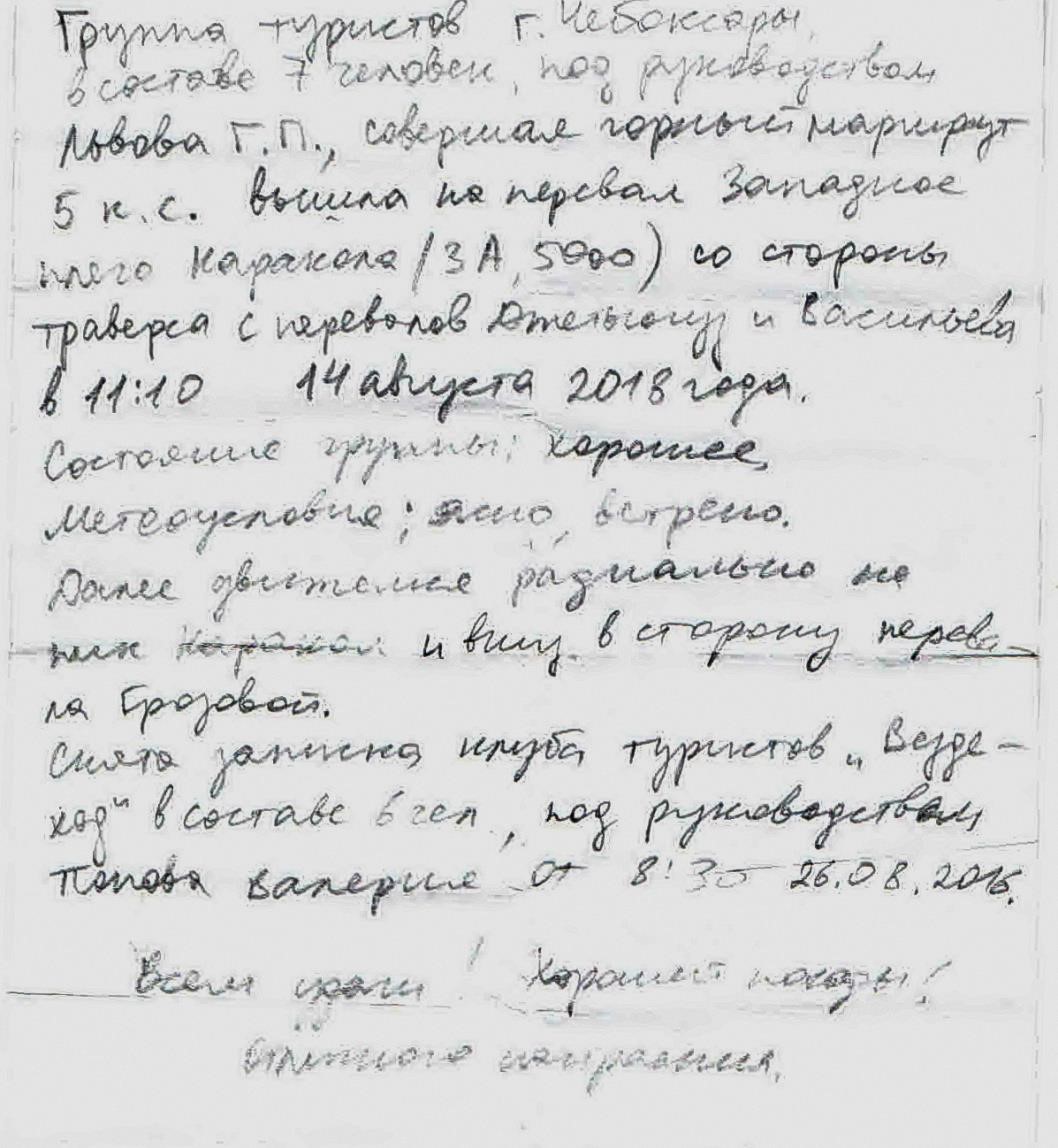 Группа туристов г. Чебоксары,
в составе 7 человек, под руководством
Львова Г.П., совершая горный маршрут
5 к.с. вышла на перевал Западное
плечо Каракола (3А, 5000) со стороны
траверса с перевалов Джетыогуз и Васильева
в 11:10 14 августа 2018 года.
Состояние группы: хорошее,
Метеоусловия: ясно, ветрено.
Далее движение радиально на
пик Каракол и вниз в сторону перева-
ла Грозовой.
Снята записка клуба туристов „Везде-
ход“ в составе 6 чел, под руководством
Попова Валерия от 8:30 26.08.2016.
Всем удачи! Хорошей погоды!
Отличного настроения.